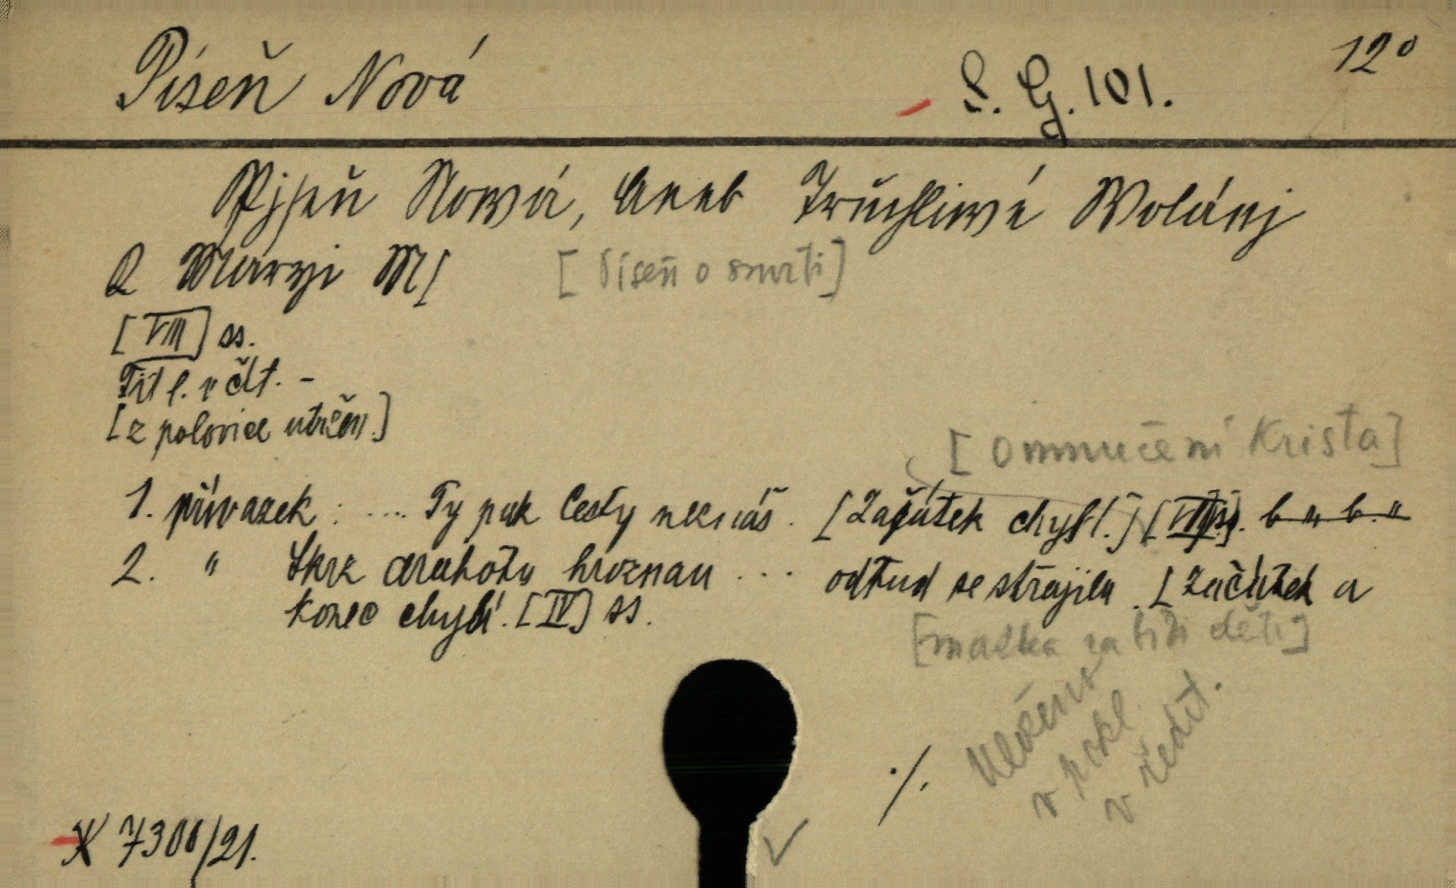 Píseň Nová
S. G. 101.
12°
Pjseň Nowá, Aneb Truchliwé Wolánj
Q Maryi M[
[Píseň o smrti]
[VIII] ss.
Titl. v čít. -
[z polovice utržen.]
[O mnučení Krista]
1. přívazek: .... Ty pak Cesty neznáš. [Začátek chybí.]
2. " Skrz drahotu hroznau ... odtud se strojila. [Začátek a
konec chybí. [IV] ss.
[matka zabíží děti]
Uloženo
v pokl.
v ředit.
./.
X 7300/21.